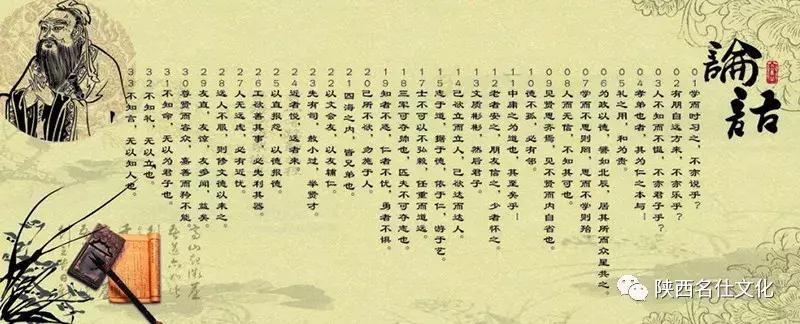 論語
01学而时习之，不亦说乎？
02有朋自远方来，不亦乐乎？
03人不知而不愠，不亦君子乎？
04孝弟也者，其为仁之本与—
05礼之用，和为贵。
06为政以德，譬如北辰，居其所而众星共之。
07学而不思则罔，思而不学则殆
08人而无信，不知其可也。
09见贤思齐焉，见不贤而内自省也。
10德不孤，必有邻。
11中庸之为道也，其至矣乎—
12老者安之，朋友信之，少者怀之。
13文质彬彬，然后君子
14己欲立而立人，己欲达而达人。
15志于道，据于德，依于仁，游于艺。
17士不可以不弘毅，任重而道远。
18三军可夺帅也，匹夫不可夺志也。
19知者不惑，仁者不忧，勇者不惧。
20己所不欲，勿施于人。
21四海之内，皆兄弟也。
22以文会友，以友辅仁。
23先有司，赦小过，举贤才。
24近者悦，远者来。
25以直报怨，以德报德
26工欲善其事，必先利其器。
27人无远虑，必有近忧
28远人不服，则修文德以来之。
29友直，友谅，友多闻，益矣。
30尊贤而容众，嘉善而矜不能
31不知命，无以为君子也
32不知礼，无以立也
33不知言，无以知人也。
陕西名仕文化